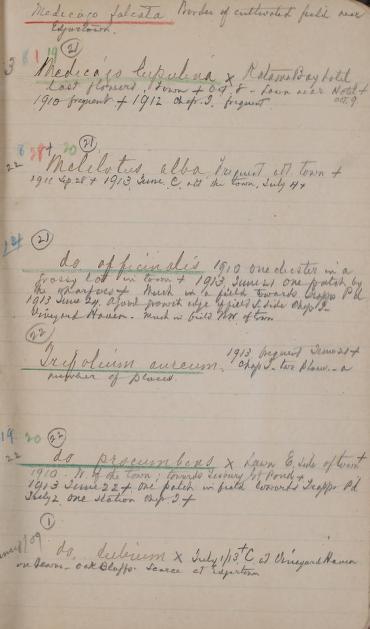 Medicago falcata Border of cultivated field near
Edgartown.
3 8 1 19 21
Medicago lupulina x Katama Bay hotel
last flowers, Town + Oct. 8 - Lawn near Hotel +
1910 frequent + 1912 Chap. I. frequent Oct. 9
8 28+ 20 21
22 Melilotus alba, frequent all town +
1911 Sep. 28 + 1913 June C. all the town, July 4 +
21
do officinalis 1910 one cluster in a
grassy lot in town + 1913, June 21 one patch by
the wharves + Much in a field towards Trapps Pd
1913 June 24. A good growth edge of field S. side Chap. I.
Vineyard Haven. Much in field NW of town
22
Trifolium aureum. 1913 frequent June 21 +
Chap I - two places - a
number of places.
19 20 22
22 do procumbens x Lawn E. side of town
1910 - N. of the town, towards Sesury Pd +
1913 June 22 + one patch in field towards Trapps Pd
July 2 one station Chap. I +
1
do dubium x July 1/13 + C at Vineyard Haven
on lawns - Oak Bluffs scarce at Edgartown